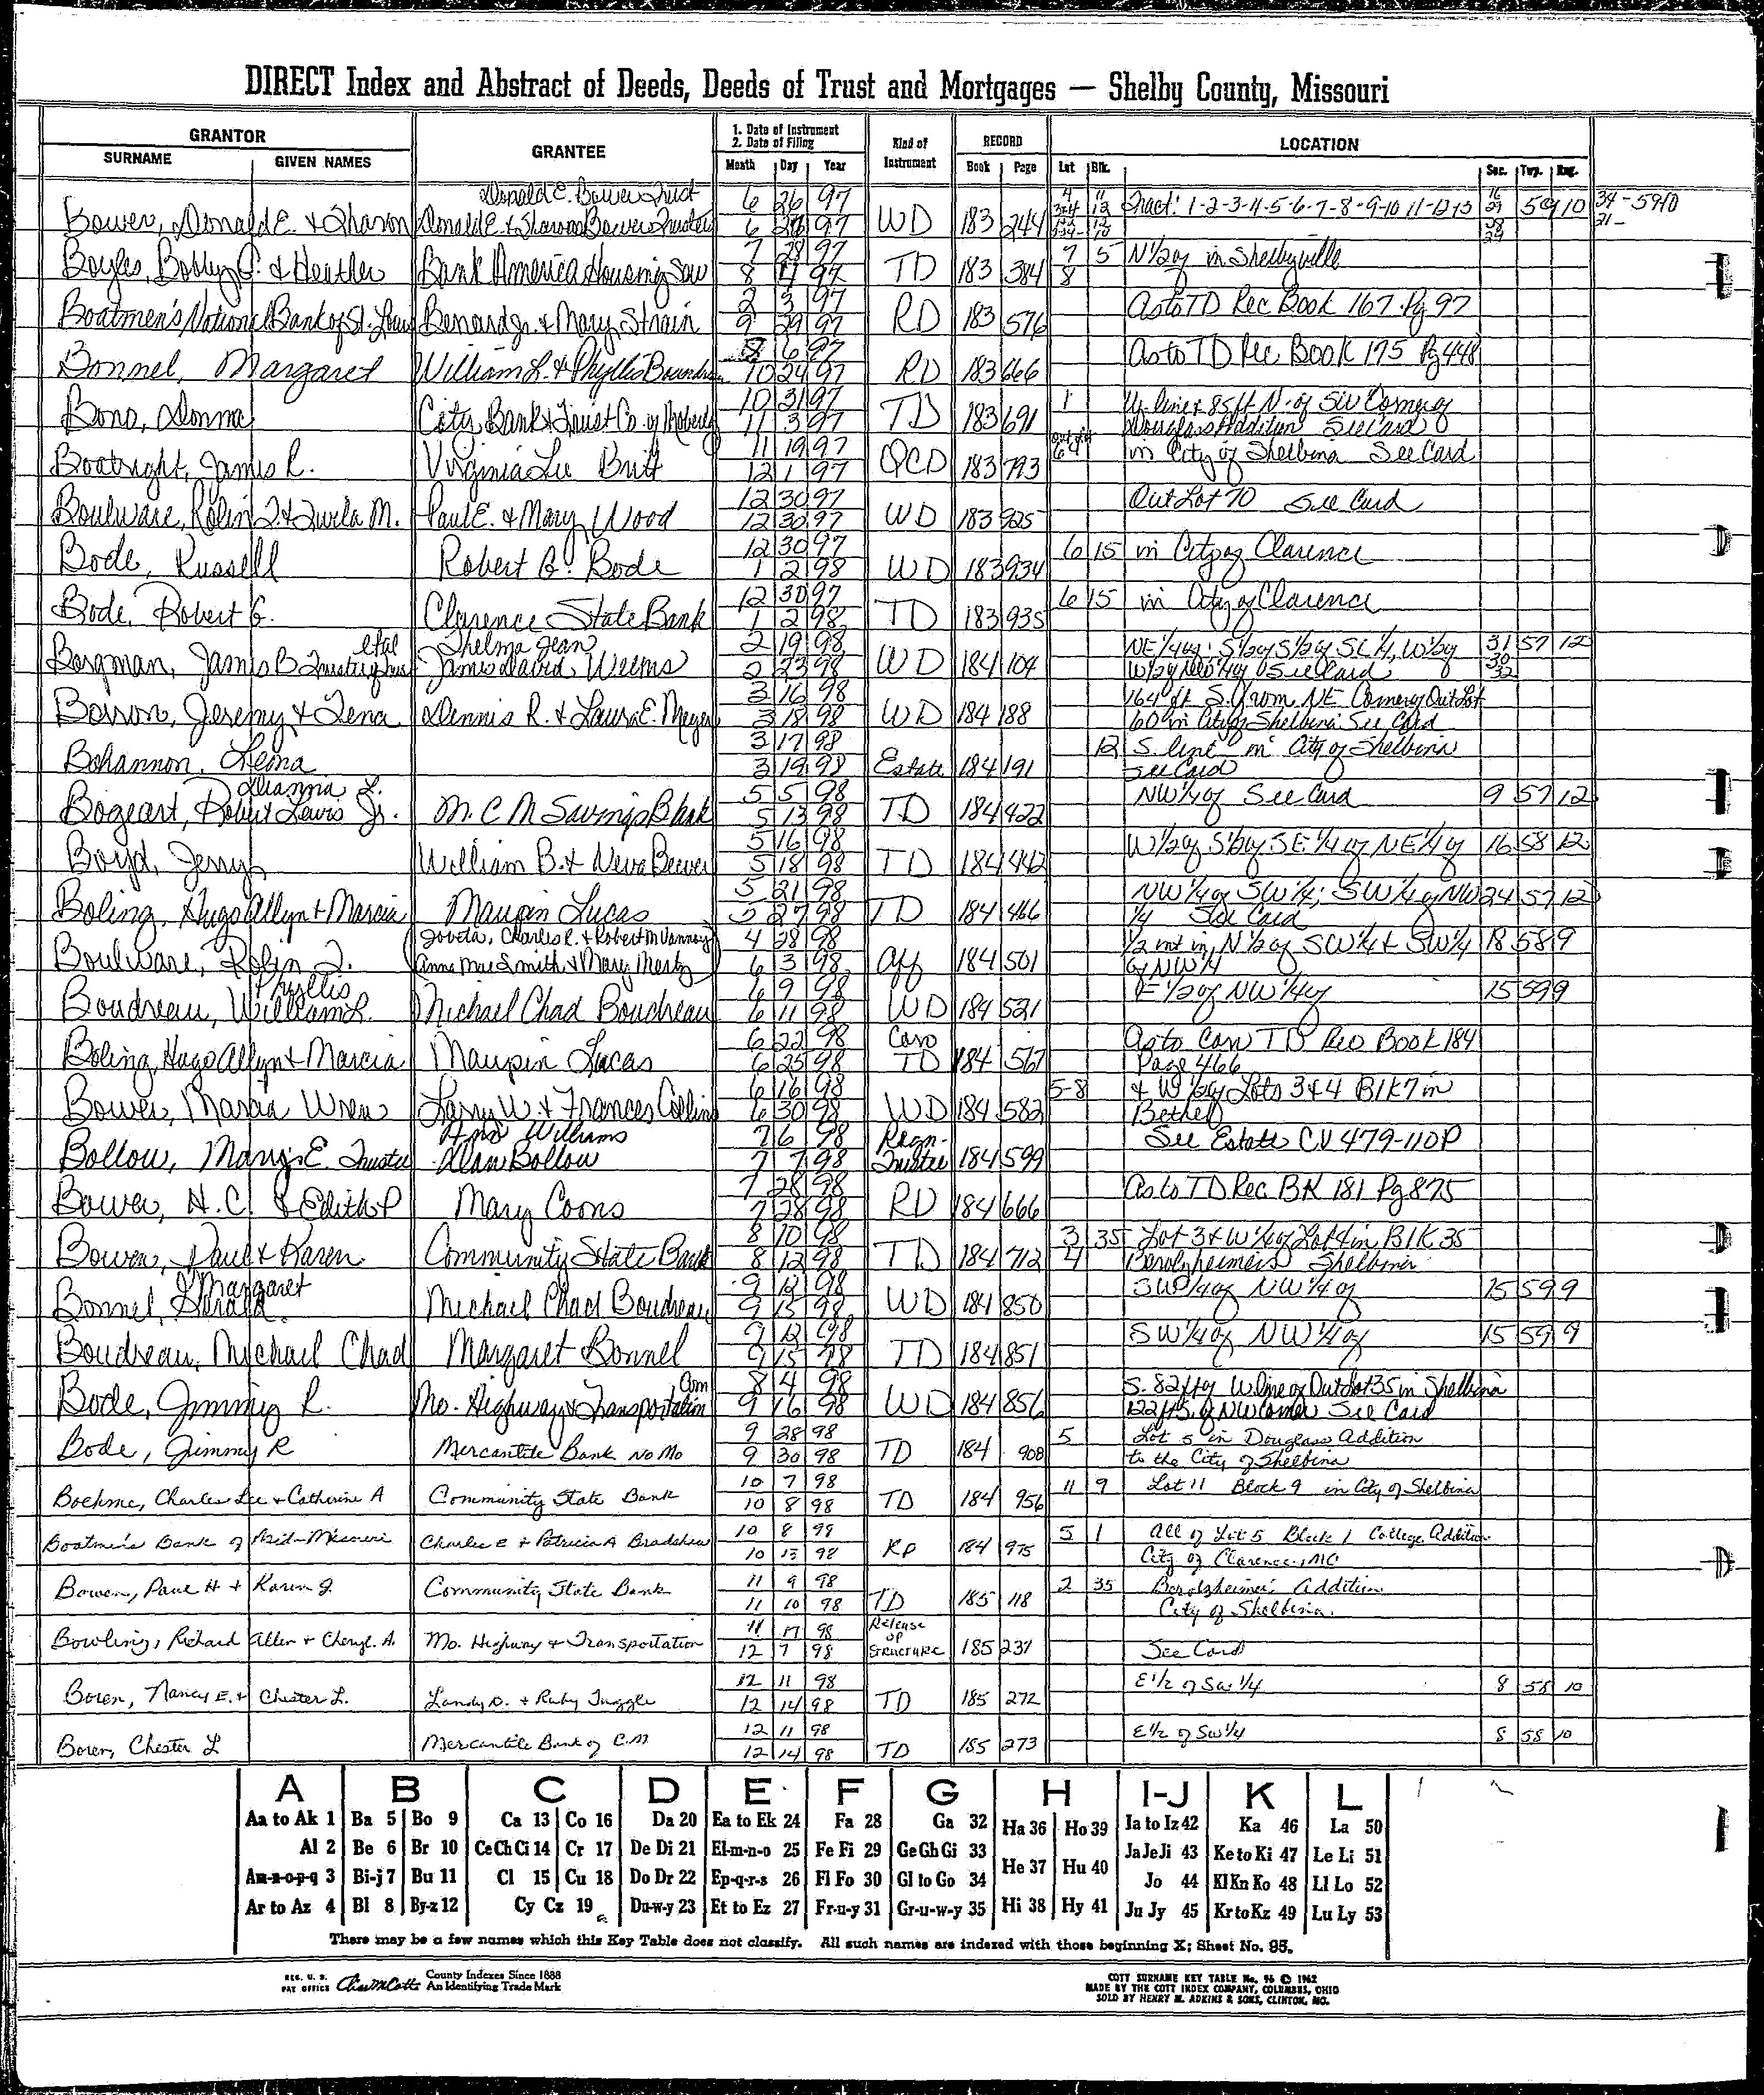 DIRECT Index and Abstract of Deeds, Deeds of Trust and Mortgages — Shelby County, Missouri
GRANTOR GRANTEE 1. Date of Instrument 2. Date of Filing Kind of Instrument RECORD LOCATION
SURNAME GIVEN NAMES Month Day Year Book Page Lot Blk. Sec. Twp. Rng.
Donald E. Bower Trust 6 26 97 4 11 16
Bower, Donald E. & Sharon Donald E. & Sharon Bower Trustees 6 97 WD 183 244 Tract: 1-2-3-4-5-6-7-8-9-10 11-12-13 59 10 34-5910
Boyles, Bobby G. & Heather Bank America Housing Ser 7 28 97 8 97 TD 183 384 7 8 5 N½ of in Shelbyville
Boatmen's National Bank of St. Louis Benard Jr. & Mary Strain 2 3 97 9 29 97 RD 183 576 As to TD Rec Book 167 Pg 97
Bonnel, Margaret William L. & Phyllis Boudreau 8 6 97 10 24 97 RD 183 666 As to TD Rec Book 175 Pg 448
Bono, Donna City Bank & Trust Co. of Moberly 10 31 97 11 3 97 TD 183 691 1 W. line & 85 ft N. of SW Corner of Douglass Addition See Card
Boatright, James R. Virginia Lee Britt 11 19 97 12 1 97 QCD 183 793 Out lot 64 in City of Shelbina See Card
Boulware, Robin J. & Twela M. Paul E. & Mary Wood 12 30 97 12 30 97 WD 183 925 Out Lot 70 See Card
Bode, Russell Robert G. Bode 12 30 97 1 2 98 WD 183 934 6 15 in City of Clarence
Bode, Robert G. Clarence State Bank 12 30 97 1 2 98 TD 183 935 6 15 in City of Clarence
Borgman, James B Trustee etal Thelma Jean James David Weems 2 19 98 2 23 98 WD 184 104 NE ¼ of; S½ of S½ of SE ¼, W½ of W½ of NW ¼ of See Card 31 57 12 30 32
Borron, Jeremy & Lena Dennis R. & Laura E. Meyer 3 16 98 3 18 98 WD 184 188 164 ft S. from NE Corner of Out Lot 60 in City of Shelbina See Card
Bohannon, Leona 3 17 98 3 19 98 Estate 184 191 12 S. line in City of Shelbina See Card
Deanna L.
Bogeart, Robert Lewis Jr. M.C.M Savings Bank 5 5 98 5 13 98 TD 184 422 NW¼ of See Card 9 57 12
Boyd, Jerry William B. & Neva Bewer 5 16 98 5 18 98 TD 184 442 W½ of S½ of SE ¼ of NE ¼ of 16 58 12
Boling, Hugo Allyn & Marcia Maupin Lucas 5 21 98 5 27 98 TD 184 466 NW ¼ of SW ¼; SW ¼ of NW ¼ See Card 24 57 12
Boulware, Robin J. Joveta, Charles R. & Robert M Vannoy Anna Mae Smith & Mary Mertz 4 28 98 6 3 98 Aff 184 501 ½ int in N½ of SW¼ & SW¼ of NW¼ 18 58 9
Phyllis
Boudreau, William L. Michael Chad Boudreau 6 9 98 6 11 98 WD 184 521 E ½ of NW ¼ of 15 59 9
Boling, Hugo Allyn & Marcia Maupin Lucas 6 22 98 6 25 98 Corr TD 184 567 As to Corr TD Rec Book 184 Page 466
Bower, Marcia Wren Larry W. & Frances Collins 6 16 98 6 30 98 WD 184 582 5-8 & W ½ of Lots 3 & 4 Blk 7 in Bethel
Bollow, Mary E. Trustee Ann Williams Alan Bollow 7 6 98 7 7 98 Resgn. Trustee 184 599 See Estate CV 479-110P
Bower, H.C. & Edith P Mary Coons 7 28 98 7 28 98 RD 184 666 As to TD Rec BK 181 Pg 875
Bowen, Paul & Karen Community State Bank 8 10 98 8 12 98 TD 184 712 3 4 35 Lot 3 & W ¼ of Lot 4 in BlK 35 Berolzheimers Shelbina
Margaret
Bonnel, Gerald Michael Chad Boudreau 9 12 98 9 15 98 WD 184 850 SW ¼ of NW ¼ of 15 59 9
Boudreau, Michael Chad Margaret Bonnel 9 12 98 9 15 98 TD 184 851 SW ¼ of NW ¼ of 15 59 9
Bode, Jimmy R. Mo. Highway & Transportation Com 8 4 98 9 16 98 WD 184 856 S. 82 ft of W. line of Out Lot 35 in Shelbina 122 ft S. of NW Corner See Card
Bode, Jimmy R Mercantile Bank No Mo 9 28 98 9 30 98 TD 184 908 5 Lot 5 in Douglass Addition to the City of Shelbina
Boehme, Charles Lee & Catherine A Community State Bank 10 7 98 10 8 98 TD 184 956 11 9 Lot 11 Block 9 in City of Shelbina
Boatmen's Bank of Mid-Missouri Charles E & Patricia A Bradshaw 10 8 98 10 13 98 RD 184 975 5 1 All of Lot 5 Block 1 College Addition City of Clarence, MO
Bowen, Paul H & Karen J. Community State Bank 11 9 98 11 10 98 TD 185 118 2 35 Berolzheimer Addition City of Shelbina.
Bowling, Richard Allen & Cheryl A. Mo. Highway & Transportation 11 17 98 12 7 98 Release of Structure 185 231 See Card
Boren, Nancy E. & Chester L. Landy D. & Ruby Tuggle 12 11 98 12 14 98 TD 185 272 E ½ of SW ¼ 8 58 10
Boren, Chester L Mercantile Bank of C.M 12 11 98 12 14 98 TD 185 273 E ½ of SW ¼ 8 58 10
A B C D E F G H I-J K L
Aa to Ak 1 Ba 5 Bo 9 Ca 13 Co 16 Da 20 Ea to Ek 24 Fa 28 Ga 32 Ha 36 Ho 39 Ia to Iz 42 Ka 46 La 50
Al 2 Be 6 Br 10 Ce Ch Ci 14 Cr 17 De Di 21 El-m-n-o 25 Fe Fi 29 Ge Gh Gi 33 He 37 Hu 40 Ja Je Ji 43 Ke to Ki 47 Le Li 51
Am-n-o-p-q 3 Bi-j 7 Bu 11 Cl 15 Cu 18 Do Dr 22 Ep-q-r-s 26 Fl Fo 30 Gl to Go 34 Jo 44 Kl Kn Ko 48 Ll Lo 52
Ar to Az 4 Bl 8 By-z 12 Cy Cz 19 Du-w-y 23 Et to Ez 27 Fr-u-y 31 Gr-u-w-y 35 Hi 38 Hy 41 Ju Jy 45 Kr to Kz 49 Lu Ly 53
There may be a few names which this Key Table does not classify. All such names are indexed with those beginning X; Sheet No. 95.
REG. U. S. PAT OFFICE County Indexes Since 1888 An Identifying Trade Mark
COTT SURNAME KEY TABLE No. 96 © 1962
MADE BY THE COTT INDEX COMPANY, COLUMBUS, OHIO
SOLD BY HENRY M. ADKINS & SONS, CLINTON, MO.